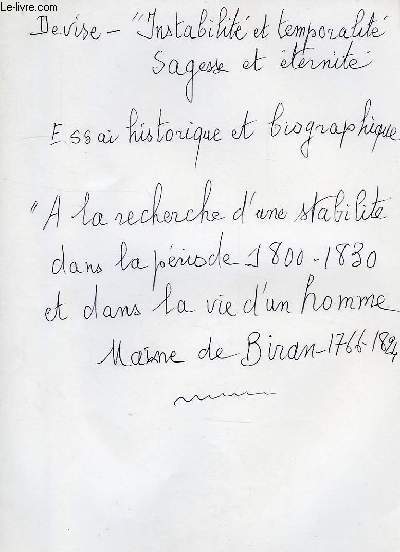 Le-livre.com
Devise - "Instabilité et temporalité
Sagesse et éternité
Essai historique et biographique
"A la recherche d'une stabilité
dans la période 1800-1830
et dans la vie d'un homme
Maine de Biran-1766-1824